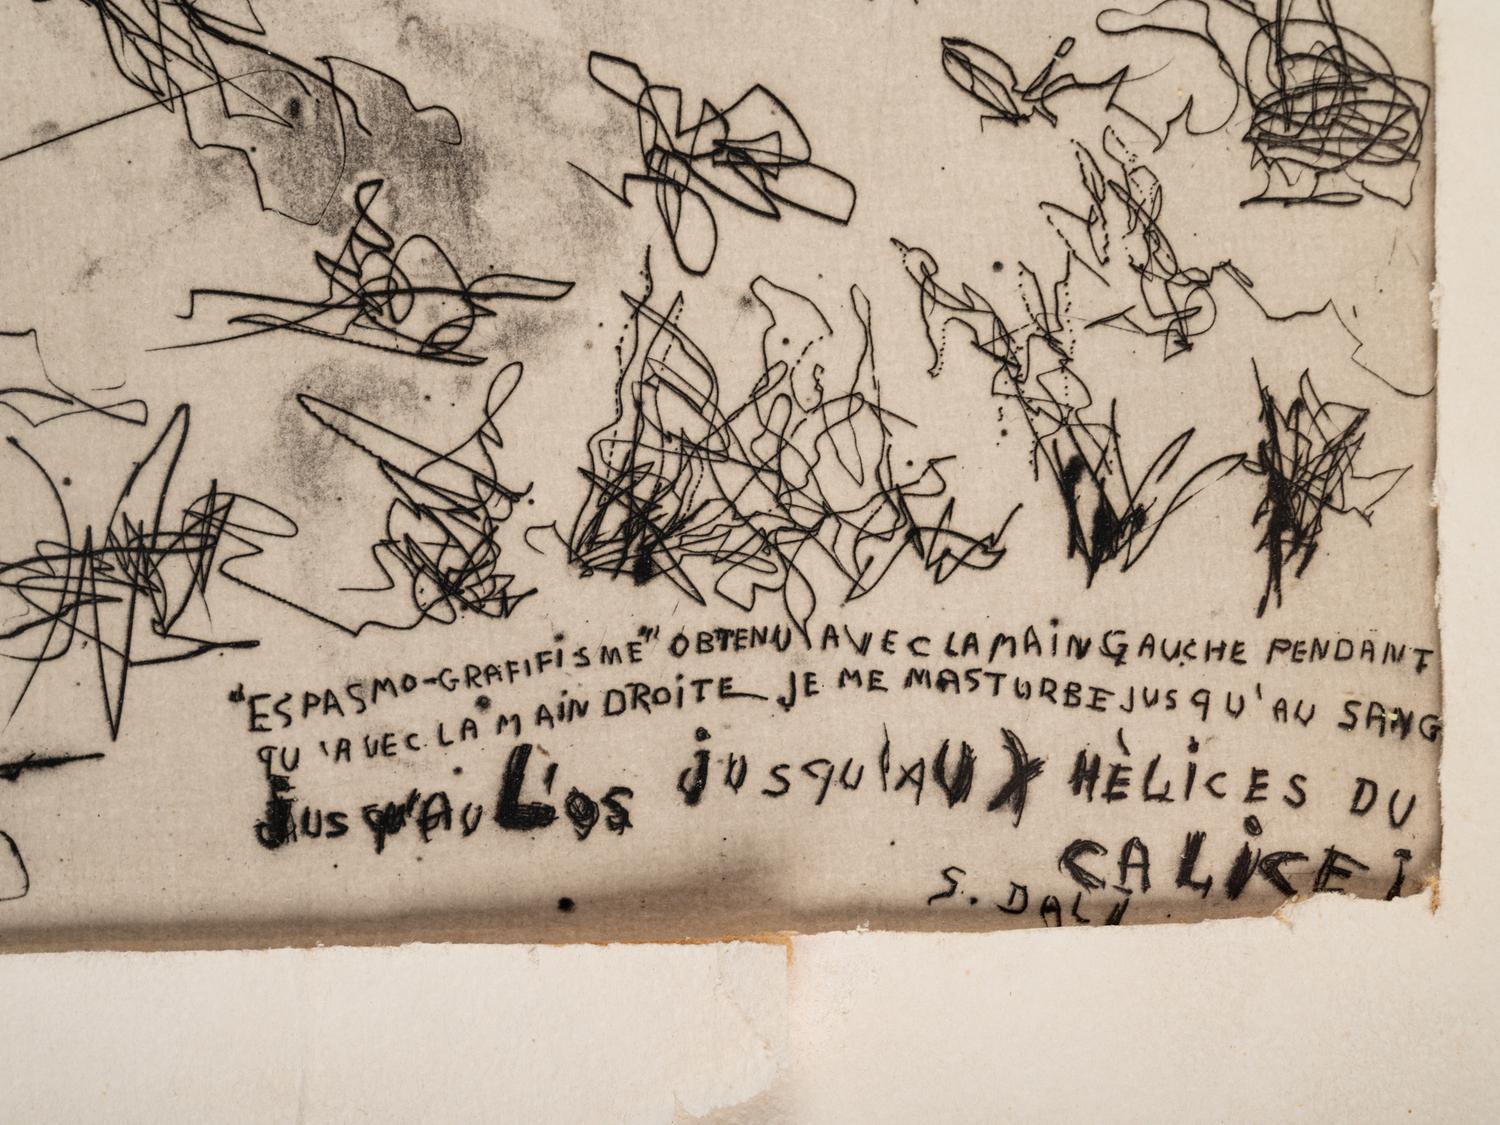 "ESPASMO-GRAFIFiSME" OBTENU AVEC LA MAiN GAUCHE PENDANT
QU'AVEC LA MAiN DROiTE JE ME MASTURBE JUSQU'AU SANG
JUSQU'AU L'OS JUSQU'AUX HÈLiCES DU
CALiCE!
S. DALi